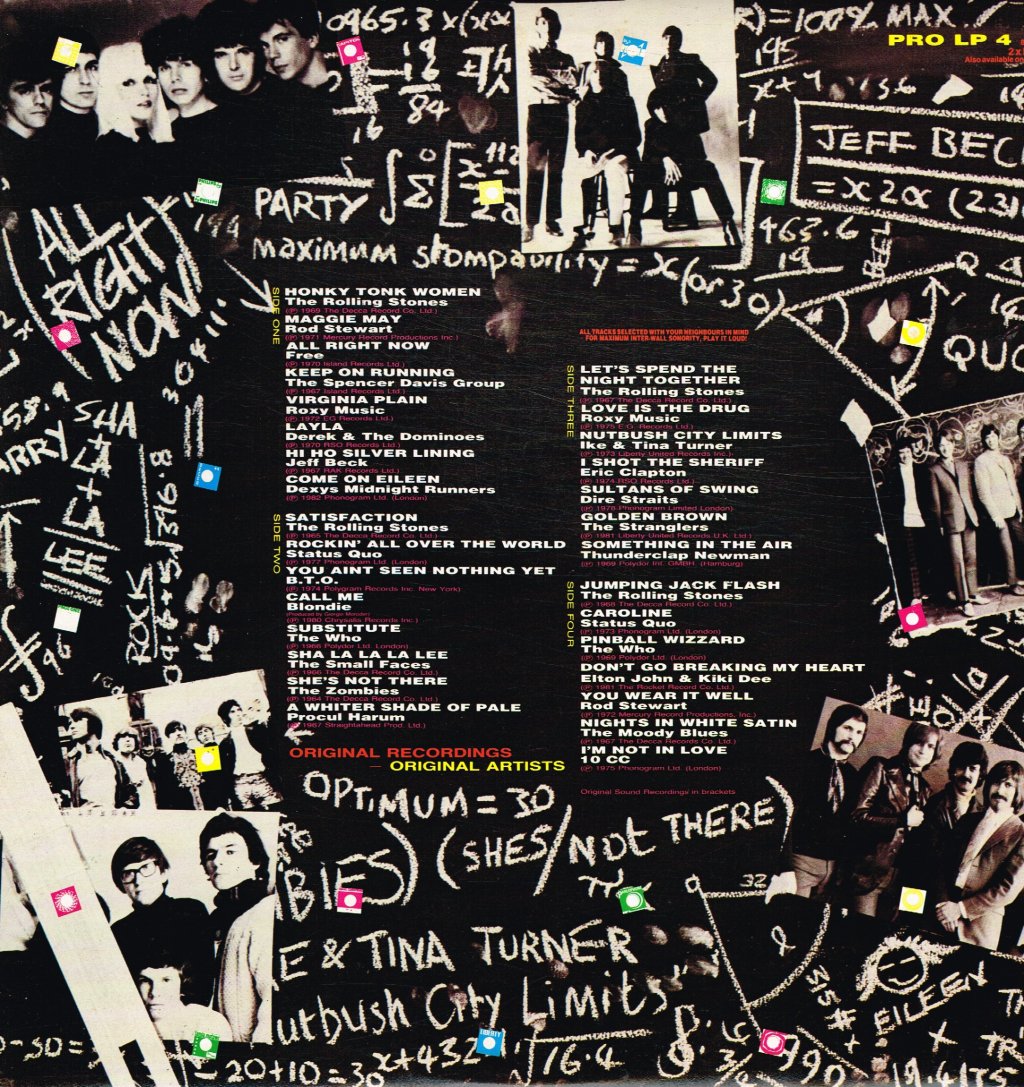 0965·3 x
R)=100% MAX.
PRO LP 4
2x
Also available on
195
x+4
18
84
16
JEFF BEC
= x 2α (231
PARTY
maximum stompability = x (or 30)
463·6
19
ALL
RIGHT
NOW
194
QUO
SIDE ONE
HONKY TONK WOMEN
The Rolling Stones
(℗ 1969 The Decca Record Co. Ltd.)
MAGGIE MAY
Rod Stewart
(℗ 1971 Mercury Record Productions Inc.)
ALL RIGHT NOW
Free
(℗ 1970 Island Records Ltd.)
KEEP ON RUNNING
The Spencer Davis Group
(℗ 1967 Island Records Ltd.)
VIRGINIA PLAIN
Roxy Music
(℗ 1972 EG Records Ltd.)
LAYLA
Derek & The Dominoes
(℗ 1970 RSO Records Ltd.)
HI HO SILVER LINING
Jeff Beck
(℗ 1967 RAK Records Ltd.)
COME ON EILEEN
Dexys Midnight Runners
(℗ 1982 Phonogram Ltd. (London)
SIDE TWO
SATISFACTION
The Rolling Stones
(℗ 1965 The Decca Record Co. Ltd.)
ROCKIN' ALL OVER THE WORLD
Status Quo
(℗ 1977 Phonogram Ltd. (London)
YOU AINT SEEN NOTHING YET
B.T.O.
(℗ 1974 Polygram Records Inc. New York)
CALL ME
Blondie
(Produced by Giorgio Moroder)
(℗ 1980 Chrysalis Records Inc.)
SUBSTITUTE
The Who
(℗ 1966 Polydor Ltd. London)
SHA LA LA LA LEE
The Small Faces
(℗ 1966 The Decca Record Co. Ltd.)
SHE'S NOT THERE
The Zombies
(℗ 1964 The Decca Record Co. Ltd.)
A WHITER SHADE OF PALE
Procul Harum
(℗ 1967 Straightahead Prod. Ltd.)
ORIGINAL RECORDINGS
– ORIGINAL ARTISTS
ALL TRACKS SELECTED WITH YOUR NEIGHBOURS IN MIND
FOR MAXIMUM INTER-WALL SONORITY, PLAY IT LOUD!
SIDE THREE
LET'S SPEND THE
NIGHT TOGETHER
The Rolling Stones
(℗ 1967 The Decca Record Co. Ltd.)
LOVE IS THE DRUG
Roxy Music
(℗ 1975 E.G. Records Ltd.)
NUTBUSH CITY LIMITS
Ike & Tina Turner
(℗ 1973 Liberty United Records Inc.)
I SHOT THE SHERIFF
Eric Clapton
(℗ 1974 RSO Records Ltd.)
SULTANS OF SWING
Dire Straits
(℗ 1978 Phonogram Limited London)
GOLDEN BROWN
The Stranglers
(℗ 1981 Liberty United Records U.K. Ltd.)
SOMETHING IN THE AIR
Thunderclap Newman
(℗ 1969 Polydor Int. GMBH. (Hamburg)
SIDE FOUR
JUMPING JACK FLASH
The Rolling Stones
(℗ 1968 The Decca Record Co. Ltd.)
CAROLINE
Status Quo
(℗ 1973 Phonogram Ltd. (London)
PINBALL WIZZARD
The Who
(℗ 1969 Polydor Ltd. (London)
DON'T GO BREAKING MY HEART
Elton John & Kiki Dee
(℗ 1981 The Rocket Record Co. Ltd.)
YOU WEAR IT WELL
Rod Stewart
(℗ 1972 Mercury Record Productions, Inc.)
NIGHTS IN WHITE SATIN
The Moody Blues
(℗ 1967 The Decca Records Co. Ltd.)
I'M NOT IN LOVE
10 CC
(℗ 1975 Phonogram Ltd. (London)
Original Sound Recordings in brackets
SHA
LA+LA
LEE
ROCK
OPTIMUM = 30
BIES) (SHES/NOT THERE)
32
E & TINA TURNER
utbush City Limits"
315#
EILEEN
-30=
-20+10=30
x+432
√16·4
3/4
790
19.4175